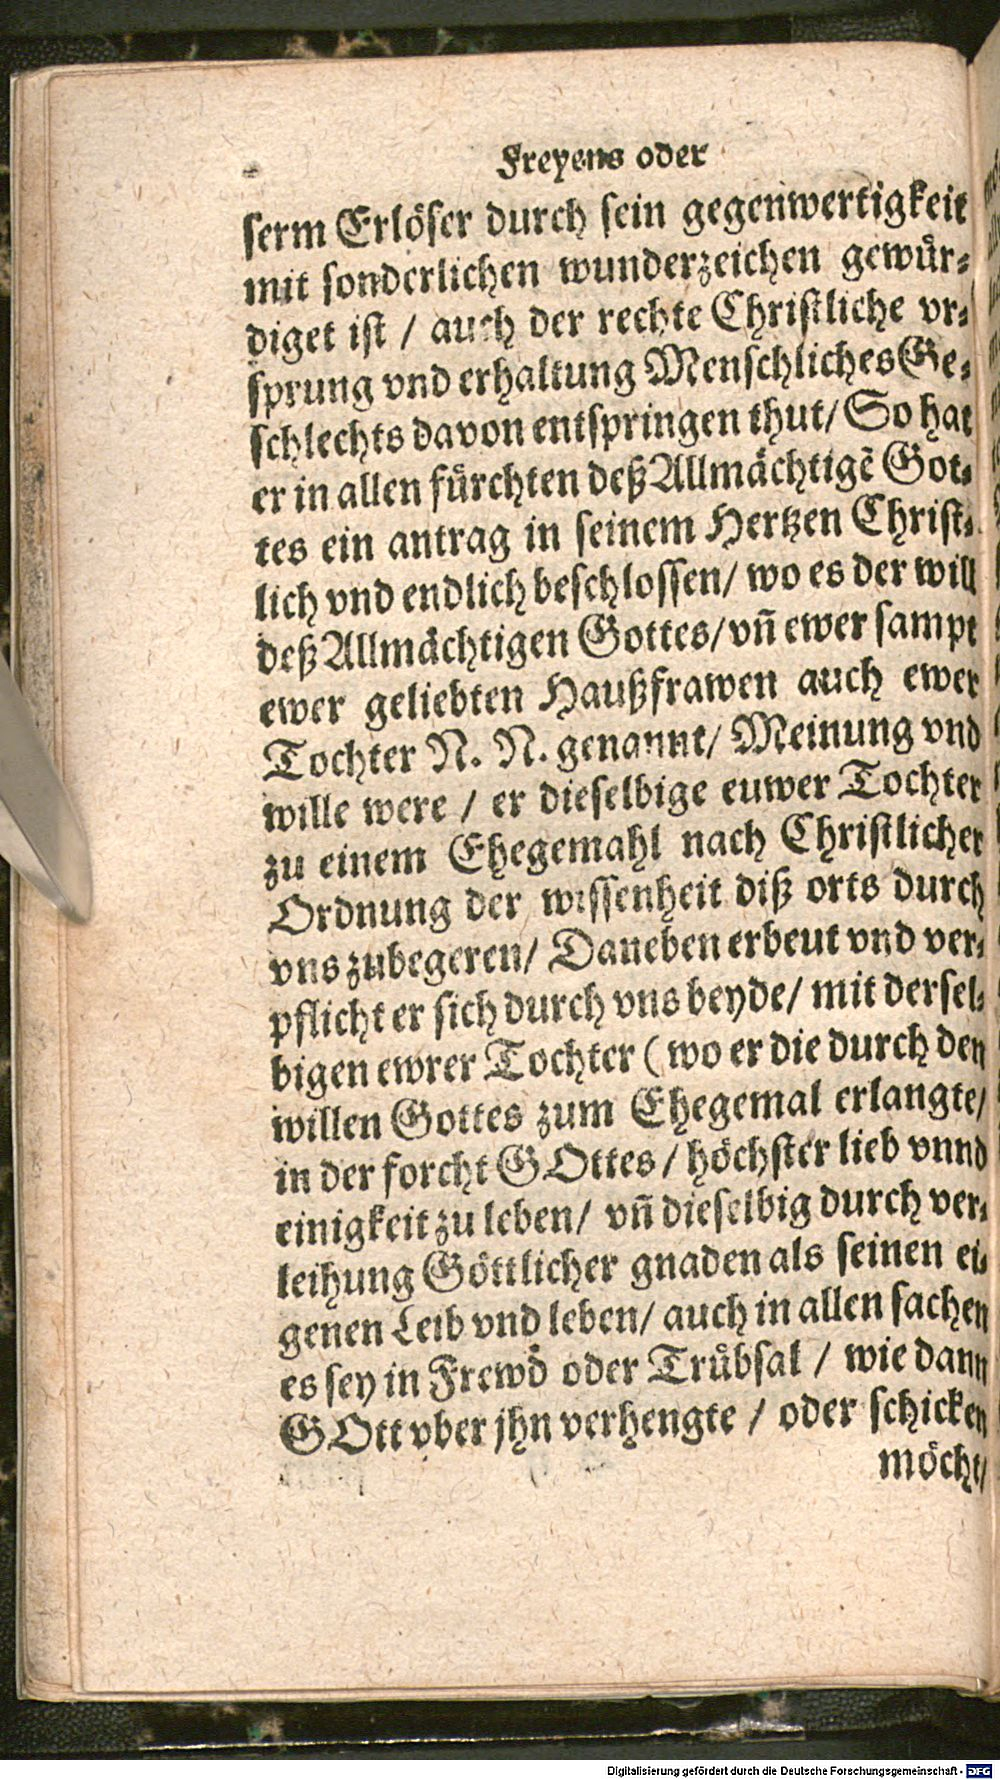 Freyens oder
serm Erlöser durch sein gegenwertigkeit
mit sonderlichen wunderzeichen gewür-
diget ist / auch der rechte Christliche vr-
sprung vnd erhaltung Menschliches Ge-
schlechts davon entspringen thut/ So hat
er in allen fürchten deß Allmächtigẽ Got-
tes ein antrag in seinem Hertzen Christ-
lich vnd endlich beschlossen/ wo es der will
deß Allmächtigen Gottes/ vñ ewer sampt
ewer geliebten Haußfrawen auch ewer
Tochter N. N. genannt/ Meinung vnd
wille were / er dieselbige euwer Tochter
zu einem Ehegemahl nach Christlicher
Ordnung der wissenheit diß orts durch
vns zubegeren/ Daneben erbeut vnd ver-
pflicht er sich durch vns beyde/ mit dersel-
bigen ewrer Tochter ( wo er die durch den
willen Gottes zum Ehegemal erlangte/
in der forcht GOttes / höchster lieb vnnd
einigkeit zu leben/ vñ dieselbig durch ver-
leihung Göttlicher gnaden als seinen ei-
genen Leib vnd leben/ auch in allen sachen
es sey in Frewd oder Trübsal / wie dann
GOtt vber jhn verhengte / oder schicken
möcht/
Digitalisierung gefördert durch die Deutsche Forschungsgemeinschaft - DFG